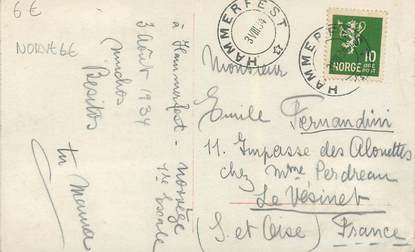 6€
NORVÈGE
à Hammerfest - Norvège
1re escale
3 Août 1934
muchos
Besitos
tu Mama
HAMMERFEST
3 VIII 34
HAMMERFEST
NORGE
10
ØRE
POST
Monsieur
Emile Fernandini
11. Impasse des Alouettes
chez Mme Perdreau
Le Vésinet
(S. et Oise) France